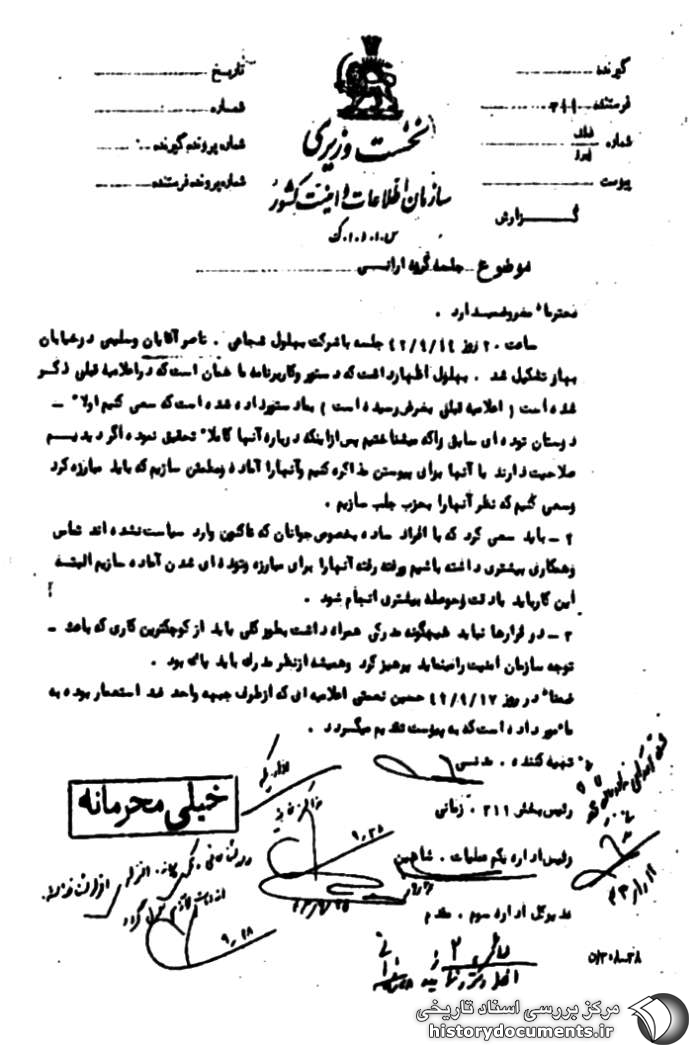 گیرنده
فرستنده ۳۱۱
شماره
پیوست
گزارش
تاریخ
شماره
شماره پرونده گیرنده
شماره پرونده فرستنده
نخست وزیری
سازمان اطلاعات و امنیت کشور
س.ا.و.ا.ک
موضوع جلسه گروه ارانی
محترماً معروضمیدارد .
ساعت ۲۰ روز ۴۲/۹/۱۴ جلسه با شرکت بهلول شجاعی . ناصر آقایان وسلیمی درخیابان
بهار تشکیل شد . بهلول اظهارداشت که دستور وکاربرنامه ما همان است که دراعلامیه قبلی ذکر
شده است ( اعلامیه قبلی بعرض رسیده است ) بما دستورداده شده است که سعی کنیم اولا" ـ
دوستان توده ای سابق راکه میشناختیم پس ازاینکه درباره آنها کاملا" تحقیق نموده اگر دیدیم
صلاحیت دارند با آنها برای پیوستن مذاکره کنیم وآنهارا آماده ومطمئن سازیم که باید مبارزه کرد
وسعی کنیم که نظر آنهارا بحزب جلب سازیم .
۲ ـ باید سعی کرد که با افراد ساده بخصوص جوانان که تاکنون وارد سیاست نشده اند تماس
وهمکاری بیشتری داشته باشیم ورفته رفته آنهارا برای مبارزه وتوده ای شدن آماده سازیم البته
این کارباید بادقت وحوصله بیشتری انجام شود .
۳ ـ در قرارها نباید هیچگونه مدرکی همراه داشت بطورکلی باید از کوچکترین کاری که باعث ـ
توجه سازمان امنیت رامینماید پرهیز کرد وهمیشه ازنظر مدرک باید پاک بود .
ضمنا" در روز ۴۲/۹/۱۷ حسین نعمتی اعلامیه ای که ازطرف جبهه واحد ضد استعمار بوده به
مأمور داده است که به پیوست تقدیم میگردد .
تهیه کننده . مدنی
رئیس بخش ۳۱۱ . زمانی
رئیس اداره یکم عملیات . شاهین
مدیرکل اداره سوم . مقدم
خیلی محرمانه
۹/۲۵
۹/۲۸
۵/۳۰۸۰۳۸
مرکز بررسی اسناد تاریخی
historydocuments.ir